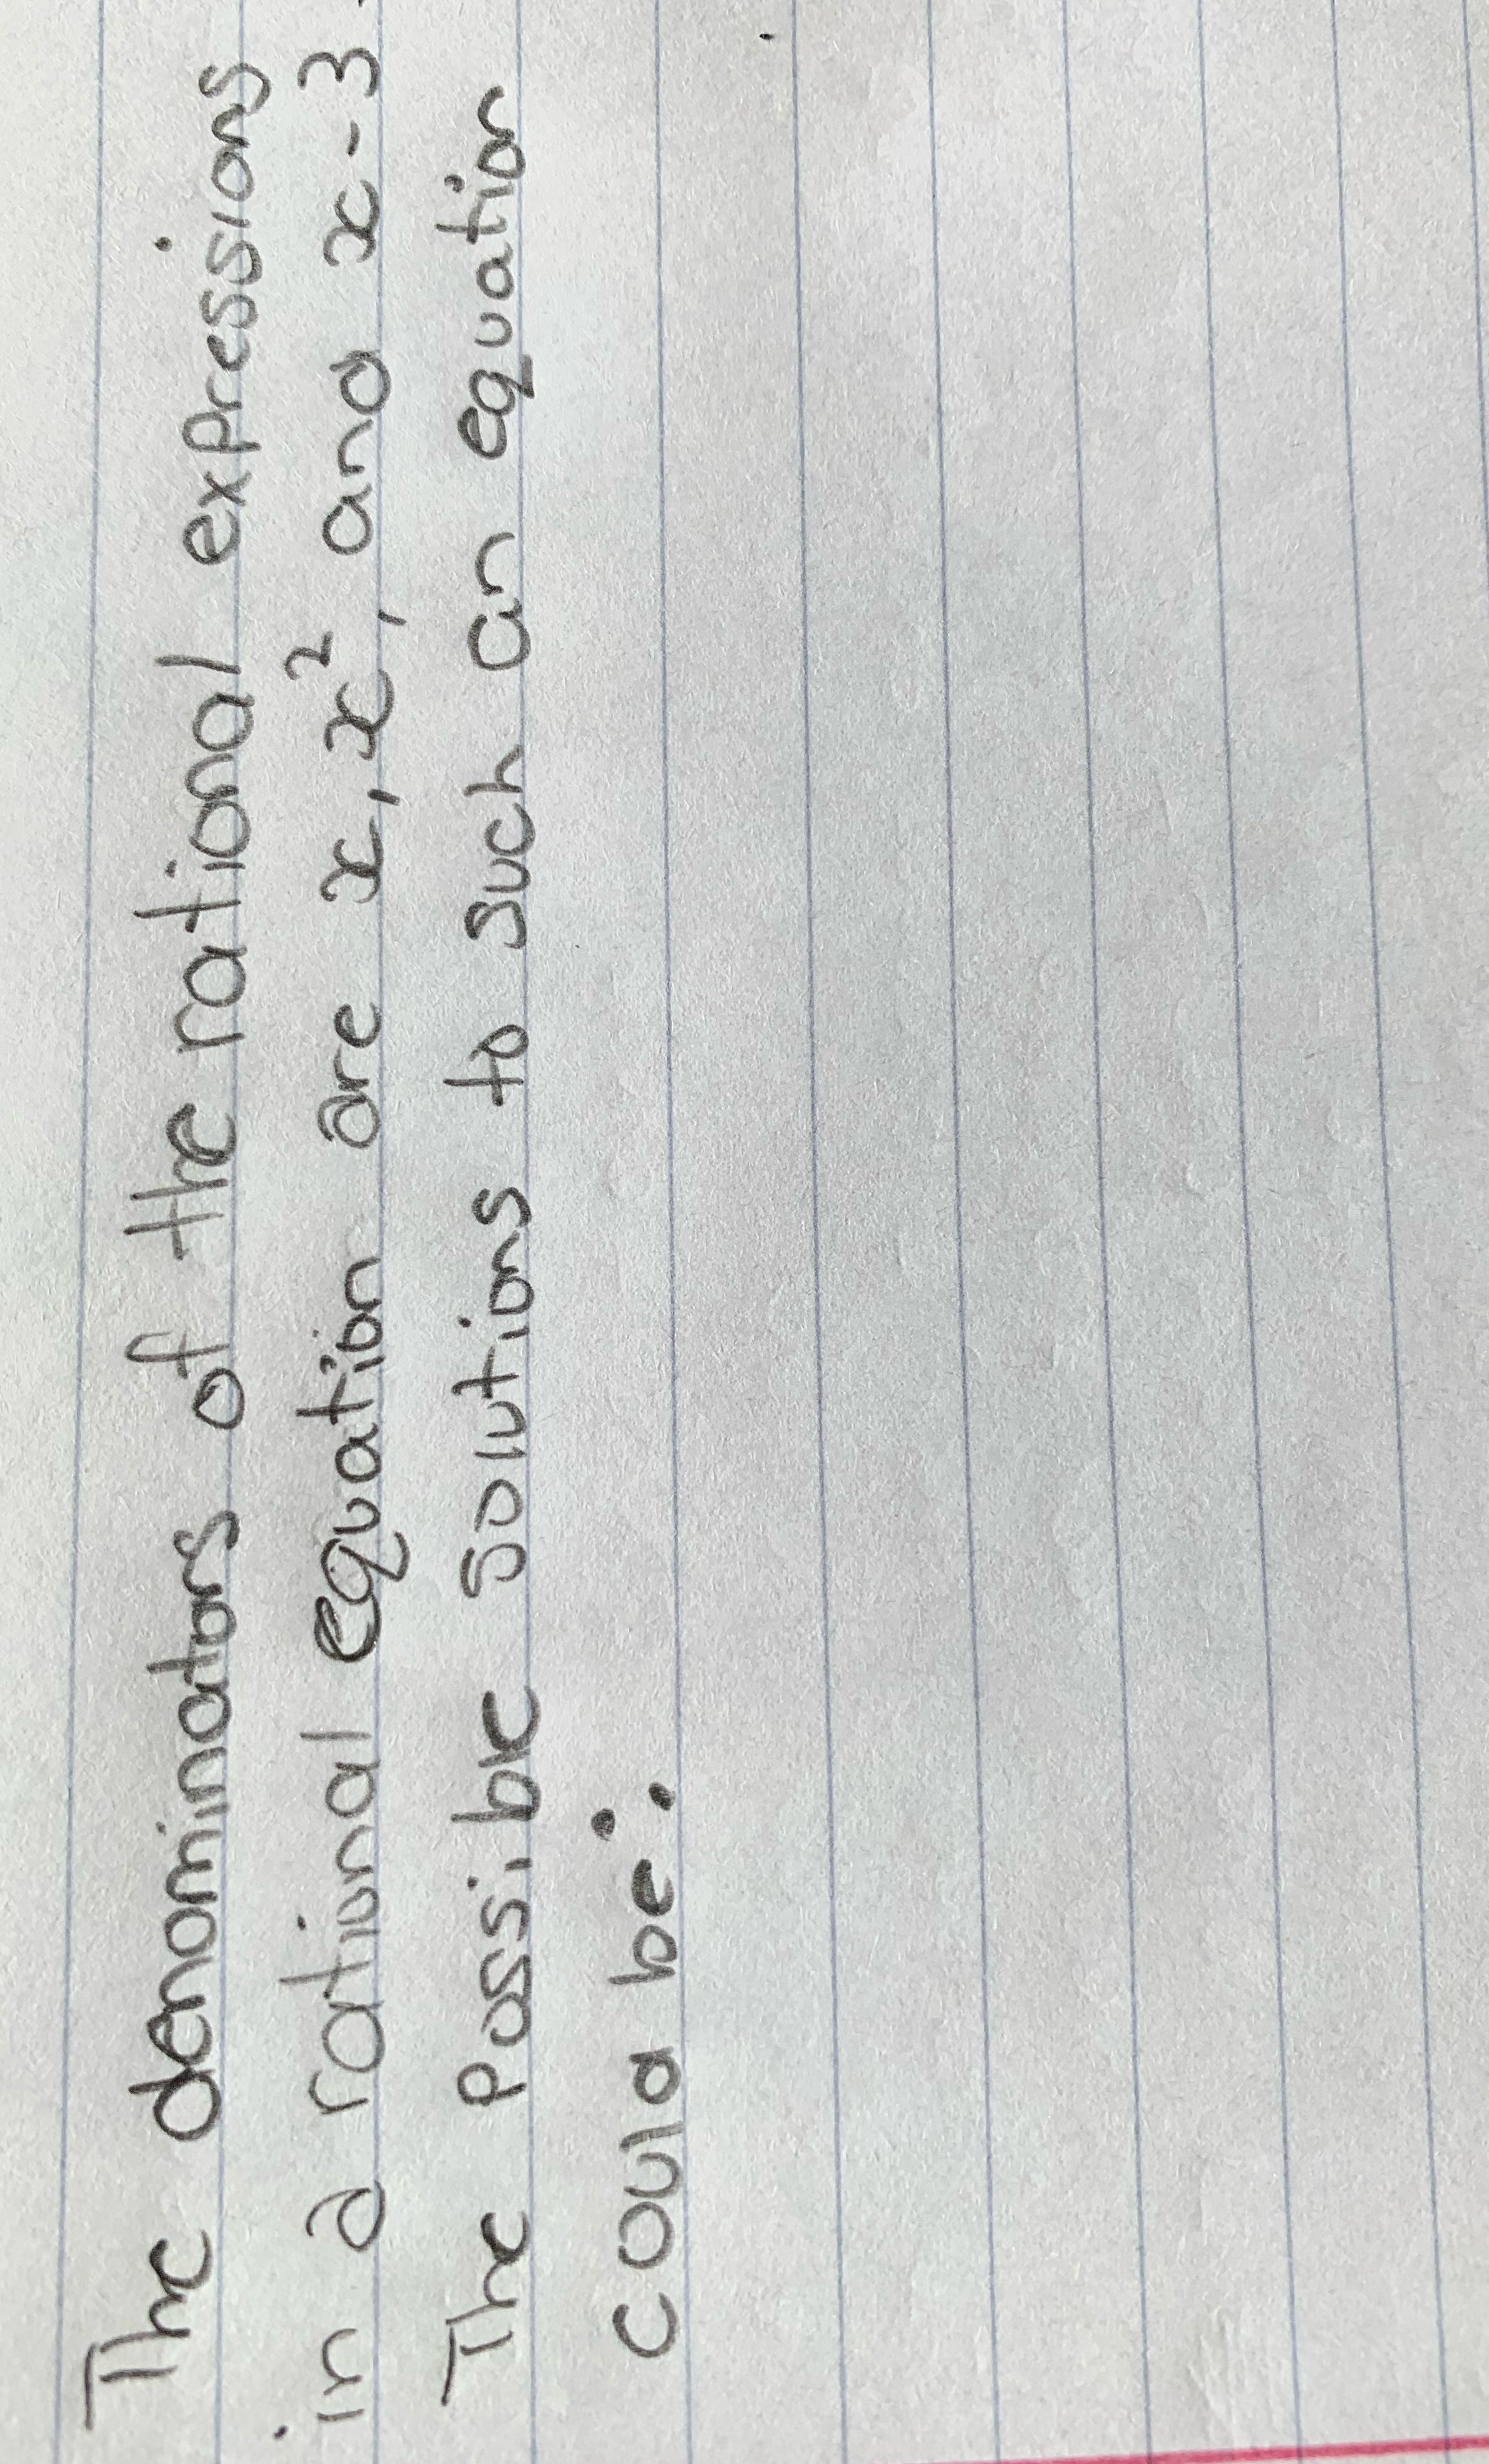 The denominators of the rational expressions
in a rational equation are x, x², and x-3.
The Possible solutions to such an equation
could be: